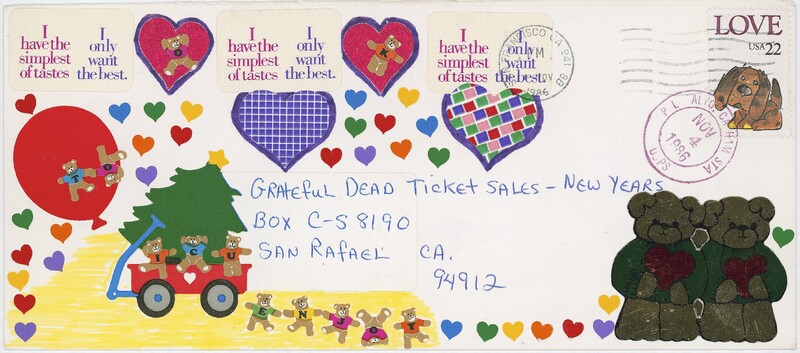 I
have the
simplest
of tastes
I
only
want
the best.
O
I
have the
simplest
of tastes
I
only
want
the best.
K
I
have the
simplest
of tastes
I
only
want
the best.
SAN FRANCISCO CA 941
PM
NOV
1986
LOVE
USA 22
NOV
4
1986
USPS
GRATEFUL DEAD TICKET SALES - NEW YEARS
BOX C-S 8190
SAN RAFAEL CA.
94912
I C U
E N J O Y